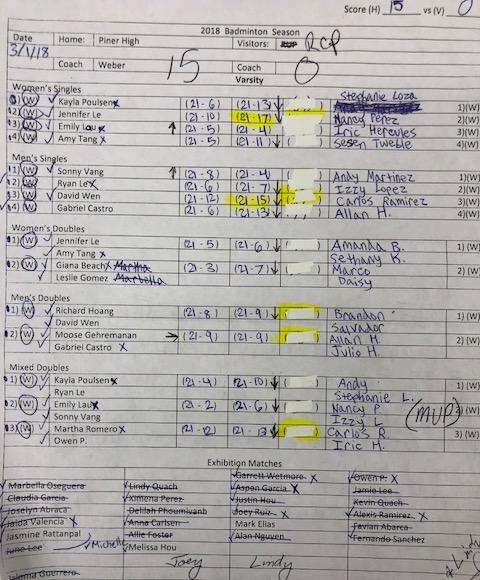 Score (H) 15 vs (V) 0
2018 Badminton Season
Date Home: Piner High Visitors: RCP
3/1/18
Coach Weber 15 Coach 0
Varsity
Women's Singles
1) (W) Kayla Poulsen x (21-6) (21-13) Stephanie Loza 1)(W)
2) (W) Jennifer Le (21-10) (21-17) Nancy Perez 2)(W)
3) (W) Emily Lau x (21-5) (21-4) Iric Hercules 3)(W)
4) (W) Amy Tang x (21-5) (21-11) 4)(W)
Men's Singles
1) (W) Sonny Vang (21-8) (21-4) Andy Martinez 1)(W)
2) (W) Ryan Le x (21-6) (21-7) Izzy Lopez 2)(W)
3) (W) David Wen (21-12) (21-15) Carlos Ramirez 3)(W)
4) (W) Gabriel Castro (21-6) (21-13) Allan H. 4)(W)
Women's Doubles
1) (W) Jennifer Le (21-5) (21-6) Amanda B. 1)(W)
Amy Tang x Bethany K.
2) (W) Giana Beach x Martha (21-3) (21-7) Marco 2)(W)
Leslie Gomez Marbella Daisy
Men's Doubles
1) (W) Richard Hoang (21-8) (21-9) Brandon 1)(W)
David Wen Salvador
2) (W) Moose Gehremanan (21-9) (21-9) Allan H 2)(W)
Gabriel Castro x Julio H.
Mixed Doubles
1) (W) Kayla Poulsen x (21-4) (21-10) Andy 1)(W)
Ryan Le Stephanie L.
2) (W) Emily Lau x (21-2) (21-6) Nancy P (MVP) (W)
Sonny Vang Izzy L
3) (W) Martha Romero x (21-12) Carlos R. 3)(W)
Owen P. Iric H.
Exhibition Matches
Garrett Wetmore x Owen P. x
Marbella Oseguera Lindy Quach Aspen Garcia x Jamie Lee
Claudia Garcia Ximena Perez Justin Hou Kevin Quach
Joselyn Abraca Delilah Phoumivanh Joey Ruiz x Alexis Ramirez x
Jaida Valencia x Anna Carlsen Mark Elias Favian Abarca
Jasmine Rattanpal Allie Foster Alan Nguyen Fernando Sanchez
June Lee Michelle Melissa Hou
Paloma Guerrero Joey Lindy